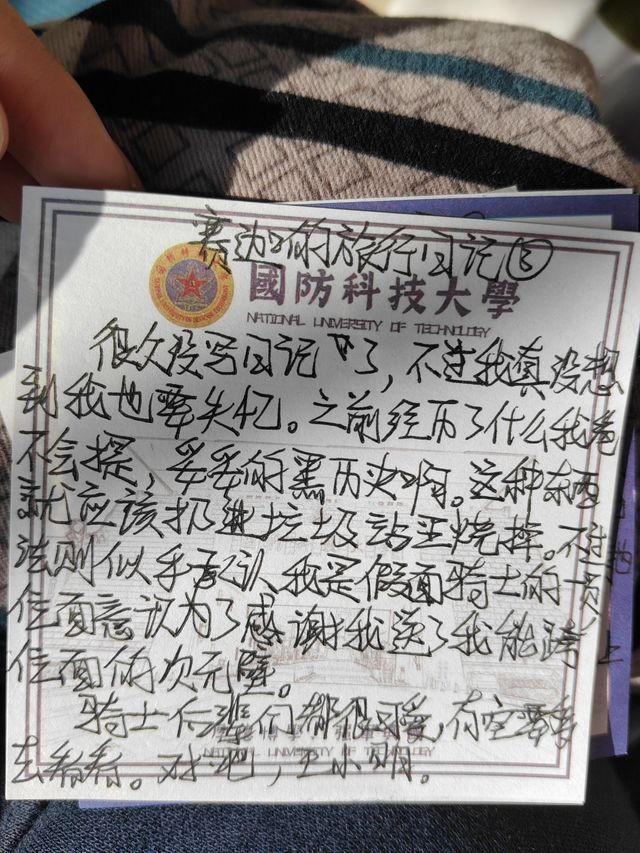 赛边的旅行日记③
國防科技大學
NATIONAL UNIVERSITY OF TECHNOLOGY
很久没写日记了，不过我真没想
到我也会失忆。之前经历了什么我
不会提，妥妥的黑历史啊。这种东西
就应该扔进垃圾站里烧掉。不过
法则似乎承认我是假面骑士的
位面意识为了感谢我送了我能跨
位面的次元壁。
骑士后辈们都很可爱，有空
去看看。对吧，王小明。
NATIONAL UNIVERSITY OF TECHNOLOGY